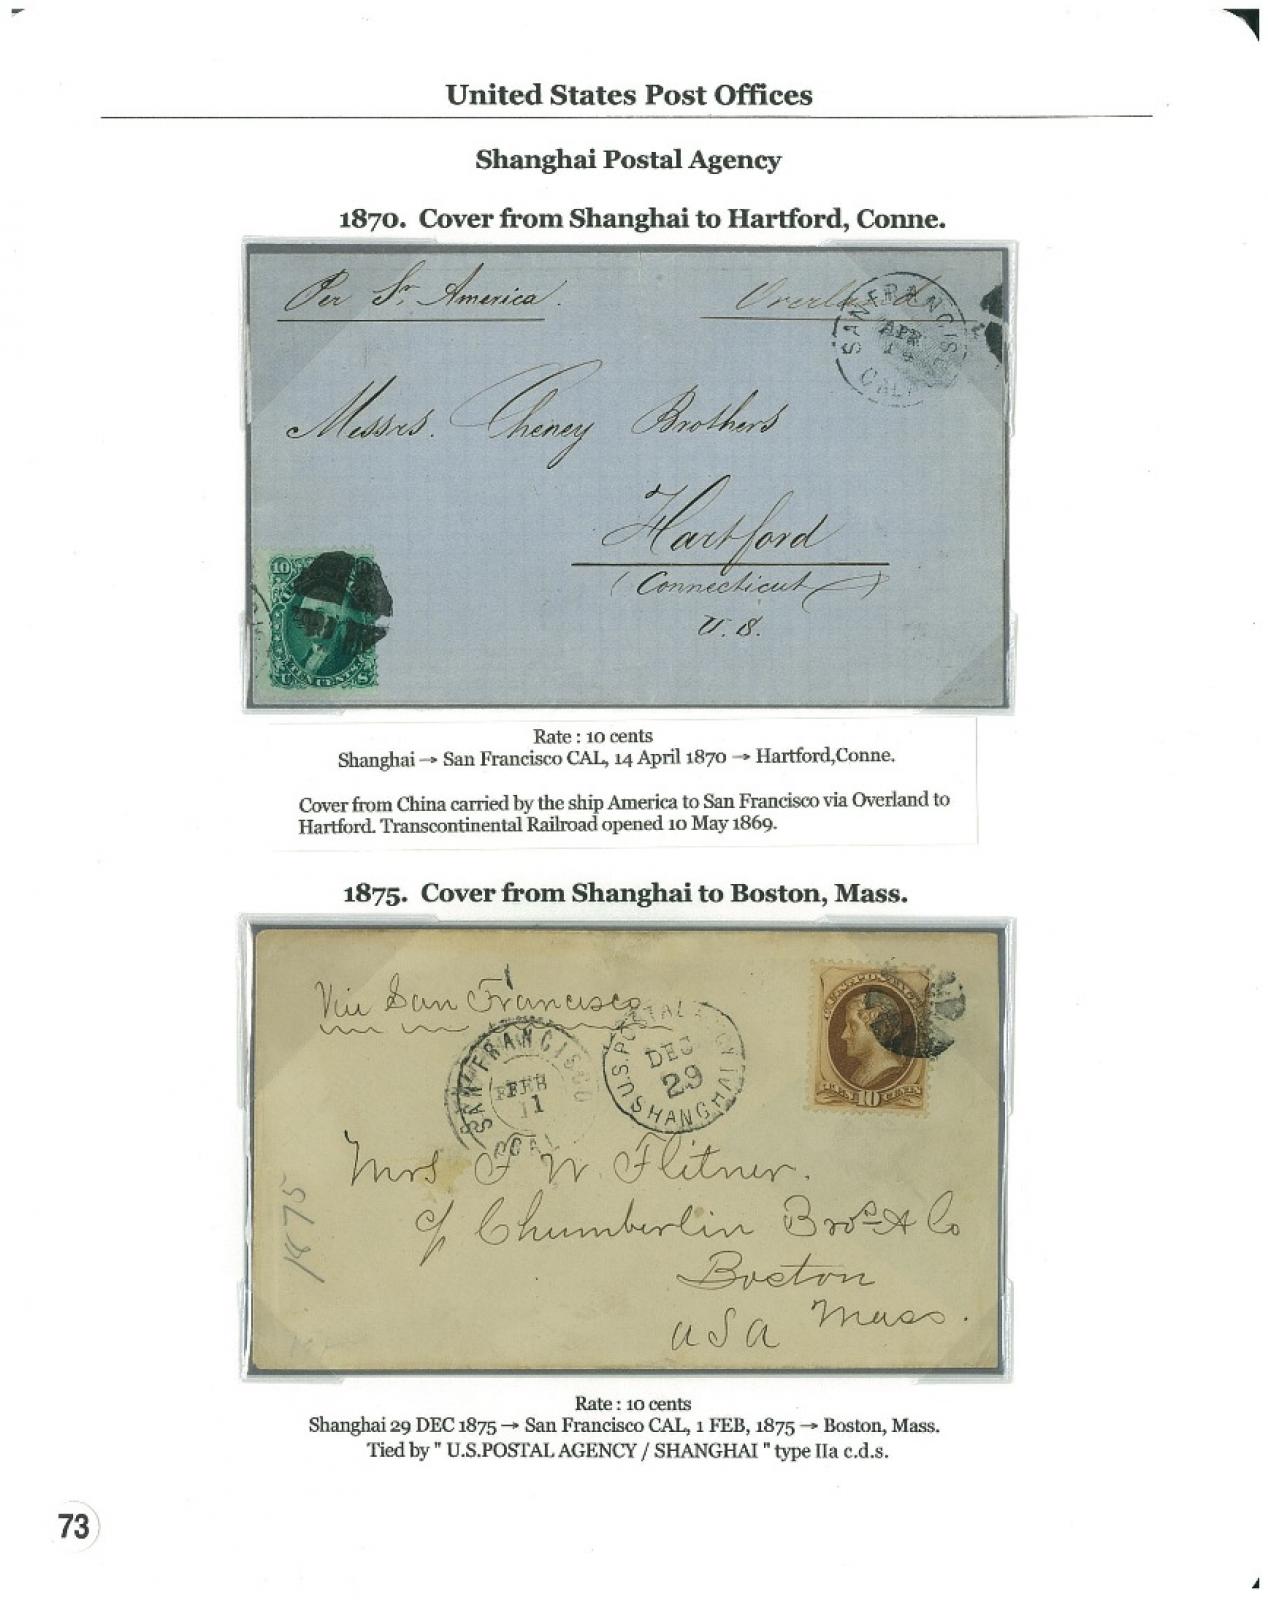 United States Post Offices
Shanghai Postal Agency
1870. Cover from Shanghai to Hartford, Conne.
Per Sr. America.
Overland
SAN FRANCIS
APR
14
CAL
Messrs. Cheney Brothers
Hartford
(Connecticut)
U.S.
10
TEN CENTS
U S
Rate : 10 cents
Shanghai → San Francisco CAL, 14 April 1870 → Hartford,Conne.
Cover from China carried by the ship America to San Francisco via Overland to
Hartford. Transcontinental Railroad opened 10 May 1869.
1875. Cover from Shanghai to Boston, Mass.
Via San Francisco
SAN FRANCISCO
FEB
1
CAL
U.S. POSTAL AGCY
DEC
29
SHANGHAI
10
Mrs F. W. Flitner.
c/ Chumberlin Bros & Co
Boston
Mass.
USA
1875
Rate : 10 cents
Shanghai 29 DEC 1875 → San Francisco CAL, 1 FEB, 1875 → Boston, Mass.
Tied by " U.S.POSTAL AGENCY / SHANGHAI " type IIa c.d.s.
73